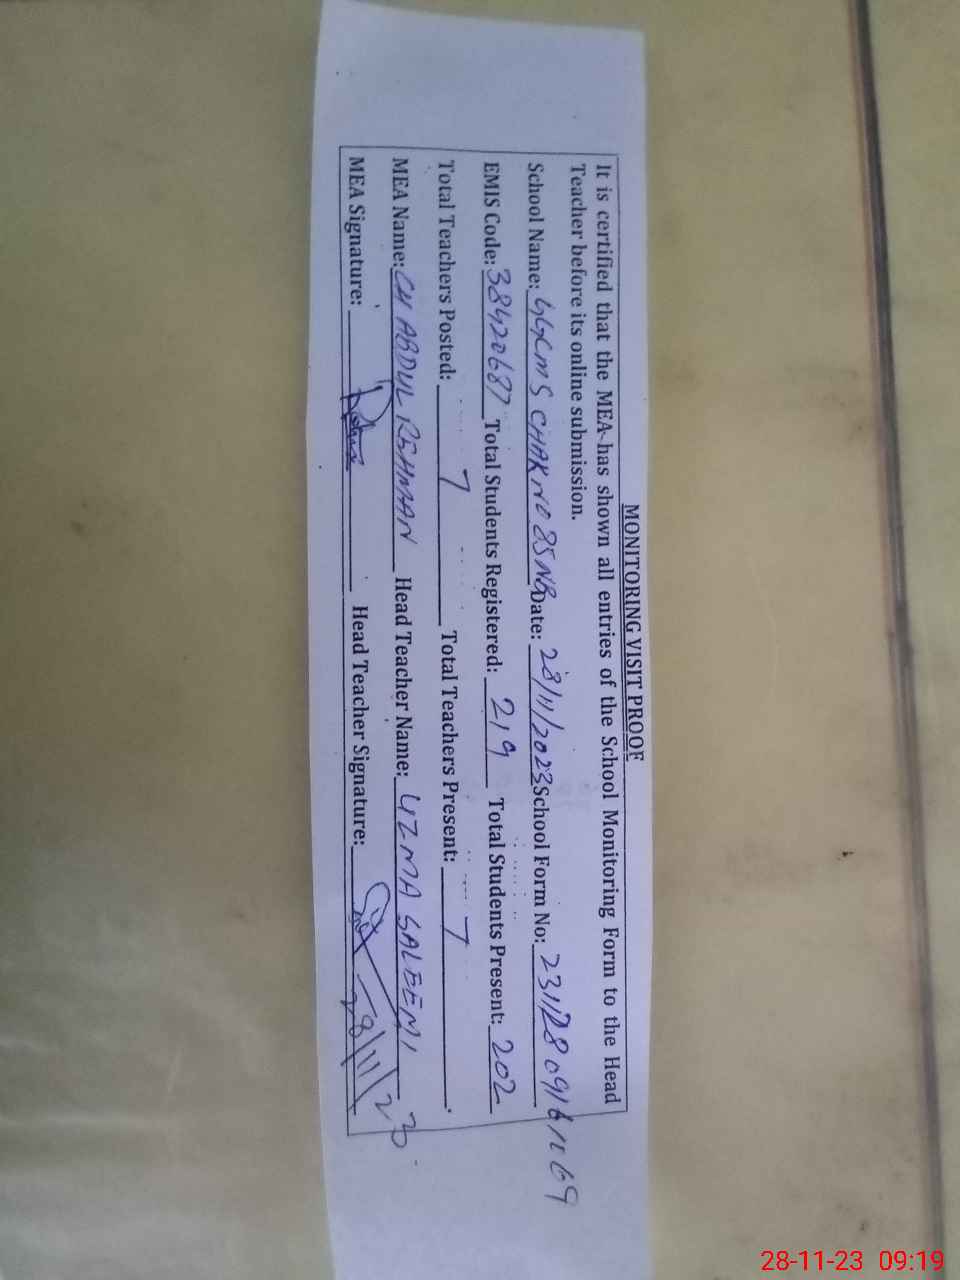 MONITORING VISIT PROOF
It is certified that the MEA has shown all entries of the School Monitoring Form to the Head
Teacher before its online submission.
School Name: GGCMS CHAK NO 85 NB Date: 28/11/2023 School Form No:
EMIS Code: 38420687 Total Students Registered: 219 Total Students Present: 202
Total Teachers Posted: 7 Total Teachers Present: 7
MEA Name: CH ABDUL REHMAN Head Teacher Name: UZMA SALEEMI
MEA Signature: Head Teacher Signature: 28/11/23
28-11-23 09:19